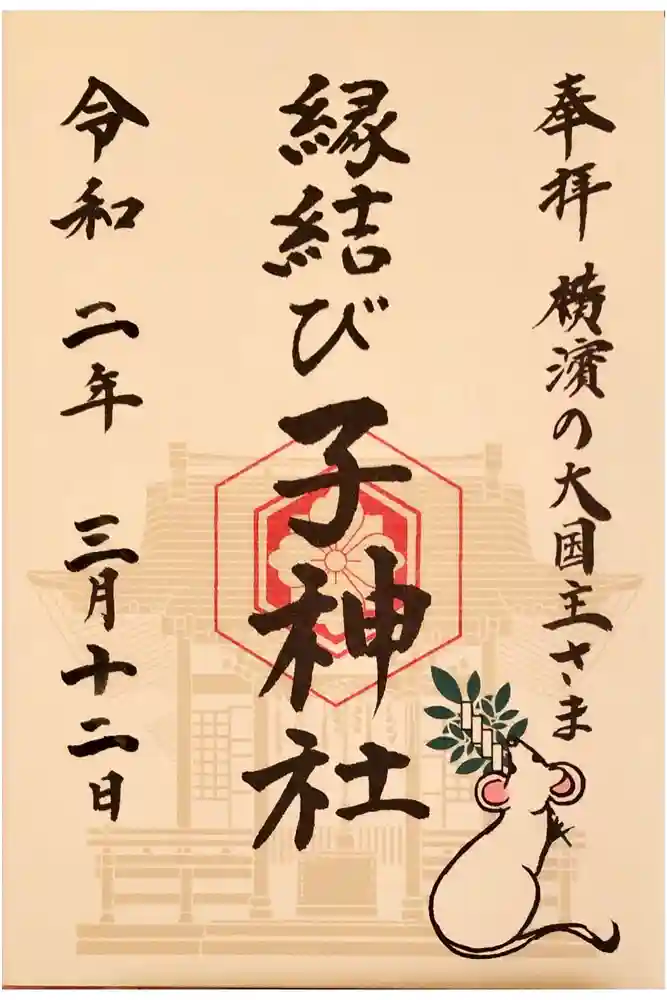 奉拝 横濱の大国主さま
縁結び子神社
令和 二年 三月十二日